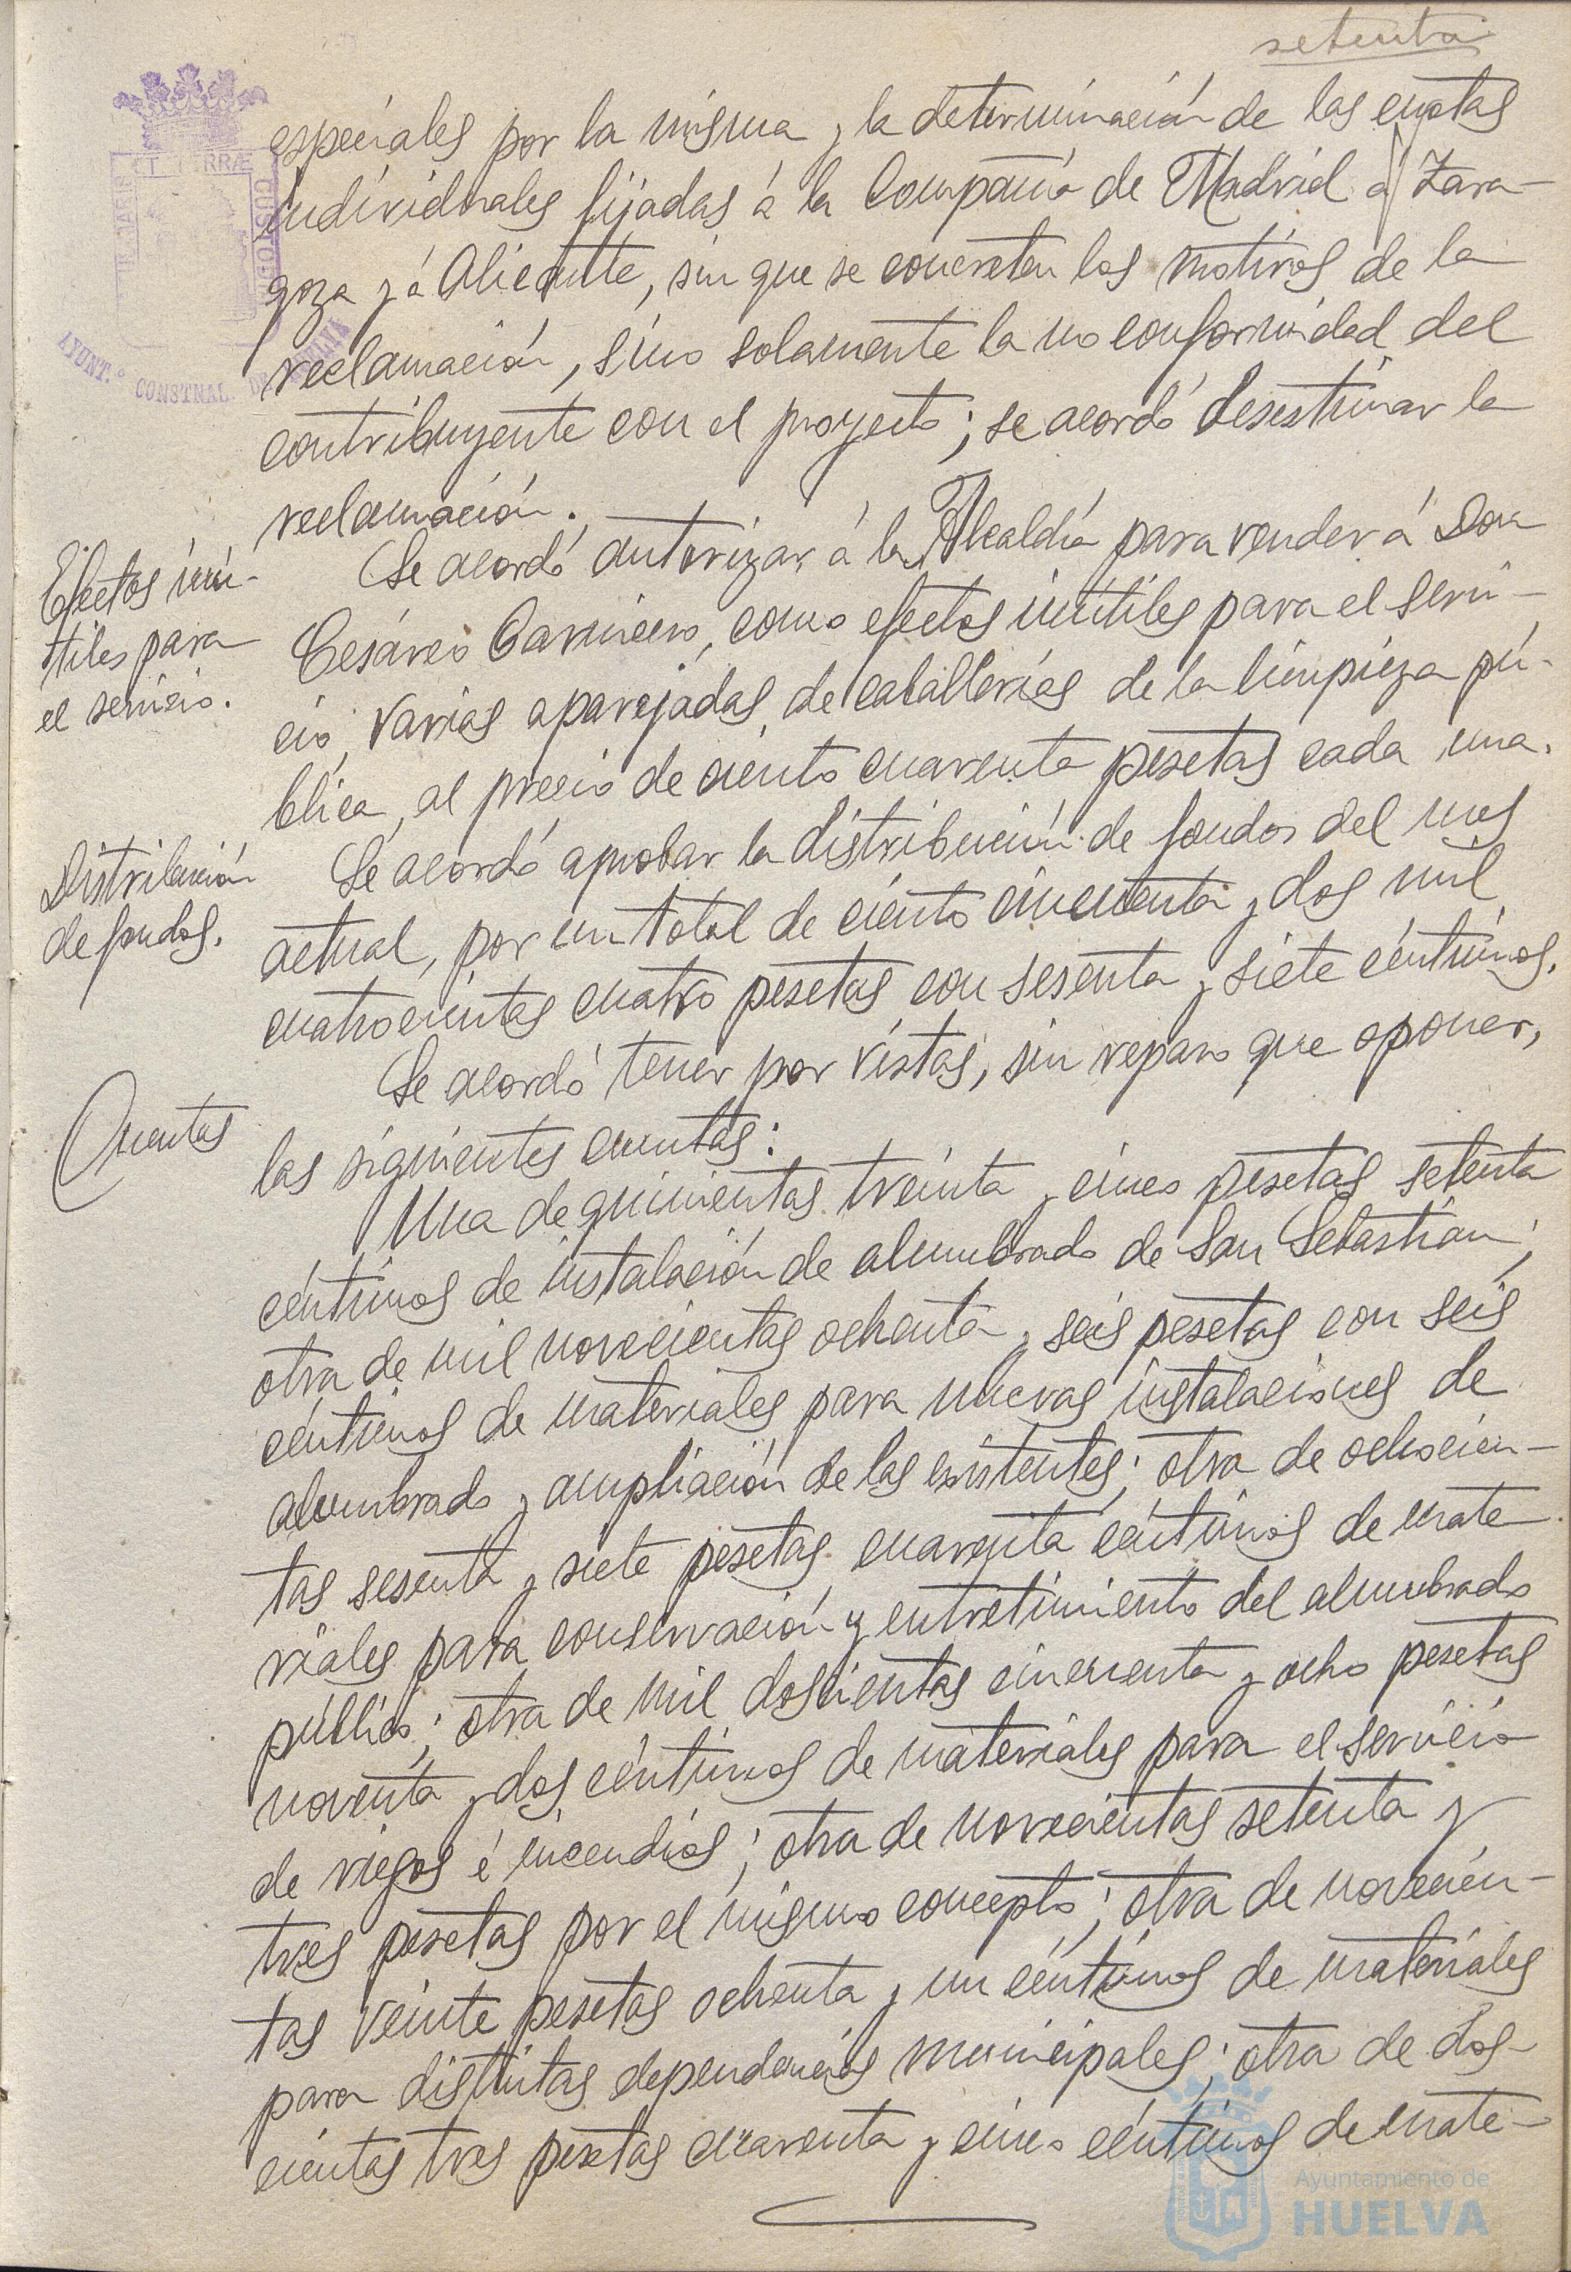 setenta
especiales por la misma y la determinación de las cuotas
individuales fijadas á la Compañía de Madrid á Zara-
goza y á Alicante, sin que se concreten los motivos de la
reclamación, sino solamente la no conformidad del
contribuyente con el proyecto; se acordó desestimar la
reclamación.
Efectos inú-
tiles para
el servicio.
Se acordó autorizar á la Alcaldía para vender á Don
Cesáreo Carnicero, como efectos inútiles para el servi-
cio, varias aparejadas de caballerías de la limpieza pú-
blica, al precio de ciento cuarenta pesetas cada una.
Distribución
de fondos.
Se acordó aprobar la distribución de fondos del mes
actual, por un total de ciento cincuenta y dos mil
cuatrocientas cuatro pesetas con sesenta y siete céntimos.
Cuentas
Se acordó tener por vistas, sin reparo que oponer,
las siguientes cuentas:
Una de quinientas treinta y cinco pesetas setenta
céntimos de instalación de alumbrado de San Sebastián;
otra de mil novecientas ochenta y seis pesetas con seis
céntimos de materiales para nuevas instalaciones de
alumbrado y ampliación de las existentes; otra de ochocien-
tas sesenta y siete pesetas cuarenta céntimos de mate
riales para conservación y entretimiento del alumbrado
público; otra de mil doscientas cincuenta y ocho pesetas
noventa y dos céntimos de materiales para el servicio
de riegos é incendios; otra de novecientas setenta y
tres pesetas por el mismo concepto; otra de novecien-
tas veinte pesetas ochenta y un céntimos de materiales
para distintas dependencias municipales; otra de dos-
cientas tres pesetas cuarenta y cinco céntimos de mate-
ET TERRÆ
CUSTODIA
AYUNT.º CONSTNAL. DE HUELVA
Ayuntamiento de
HUELVA